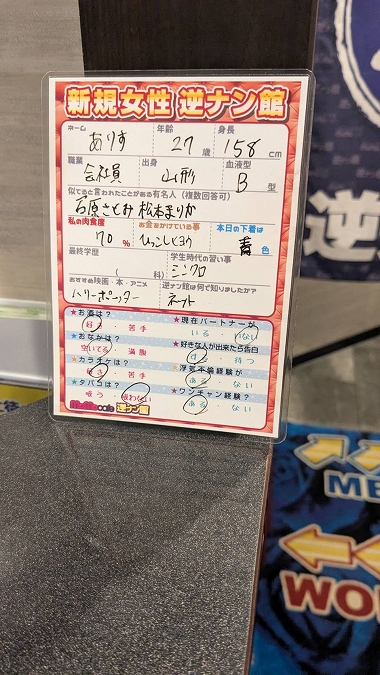 新規女性 逆ナン館
ネーム 年齢 身長
ありす 27歳 158cm
職業 出身 血液型
会社員 山形 B型
似てると言われたことがある有名人(複数回答可)
石原さとみ 松本まりか
私の肉食度 お金をかけている事 本日の下着は
70% ひっこしとヨウ 青色
最終学歴 学生時代の習い事
( 科) シンクロ
おすすめ映画・本・アニメ 逆ナン館は何で知りましたか?
ハリーポッター ネット
★お酒は? ★現在パートナーが
好き・苦手 いる・いない
★おなかは? ★好きな人が出来たら告白
空いてる・満腹 する・待つ
★カラオケは? ★浮気不倫経験が
好き・苦手 ある・ない
★タバコは? ★ワンチャン経験?
吸う・吸わない ある・ない
cafe 逆ナン館
逆
ME
WO